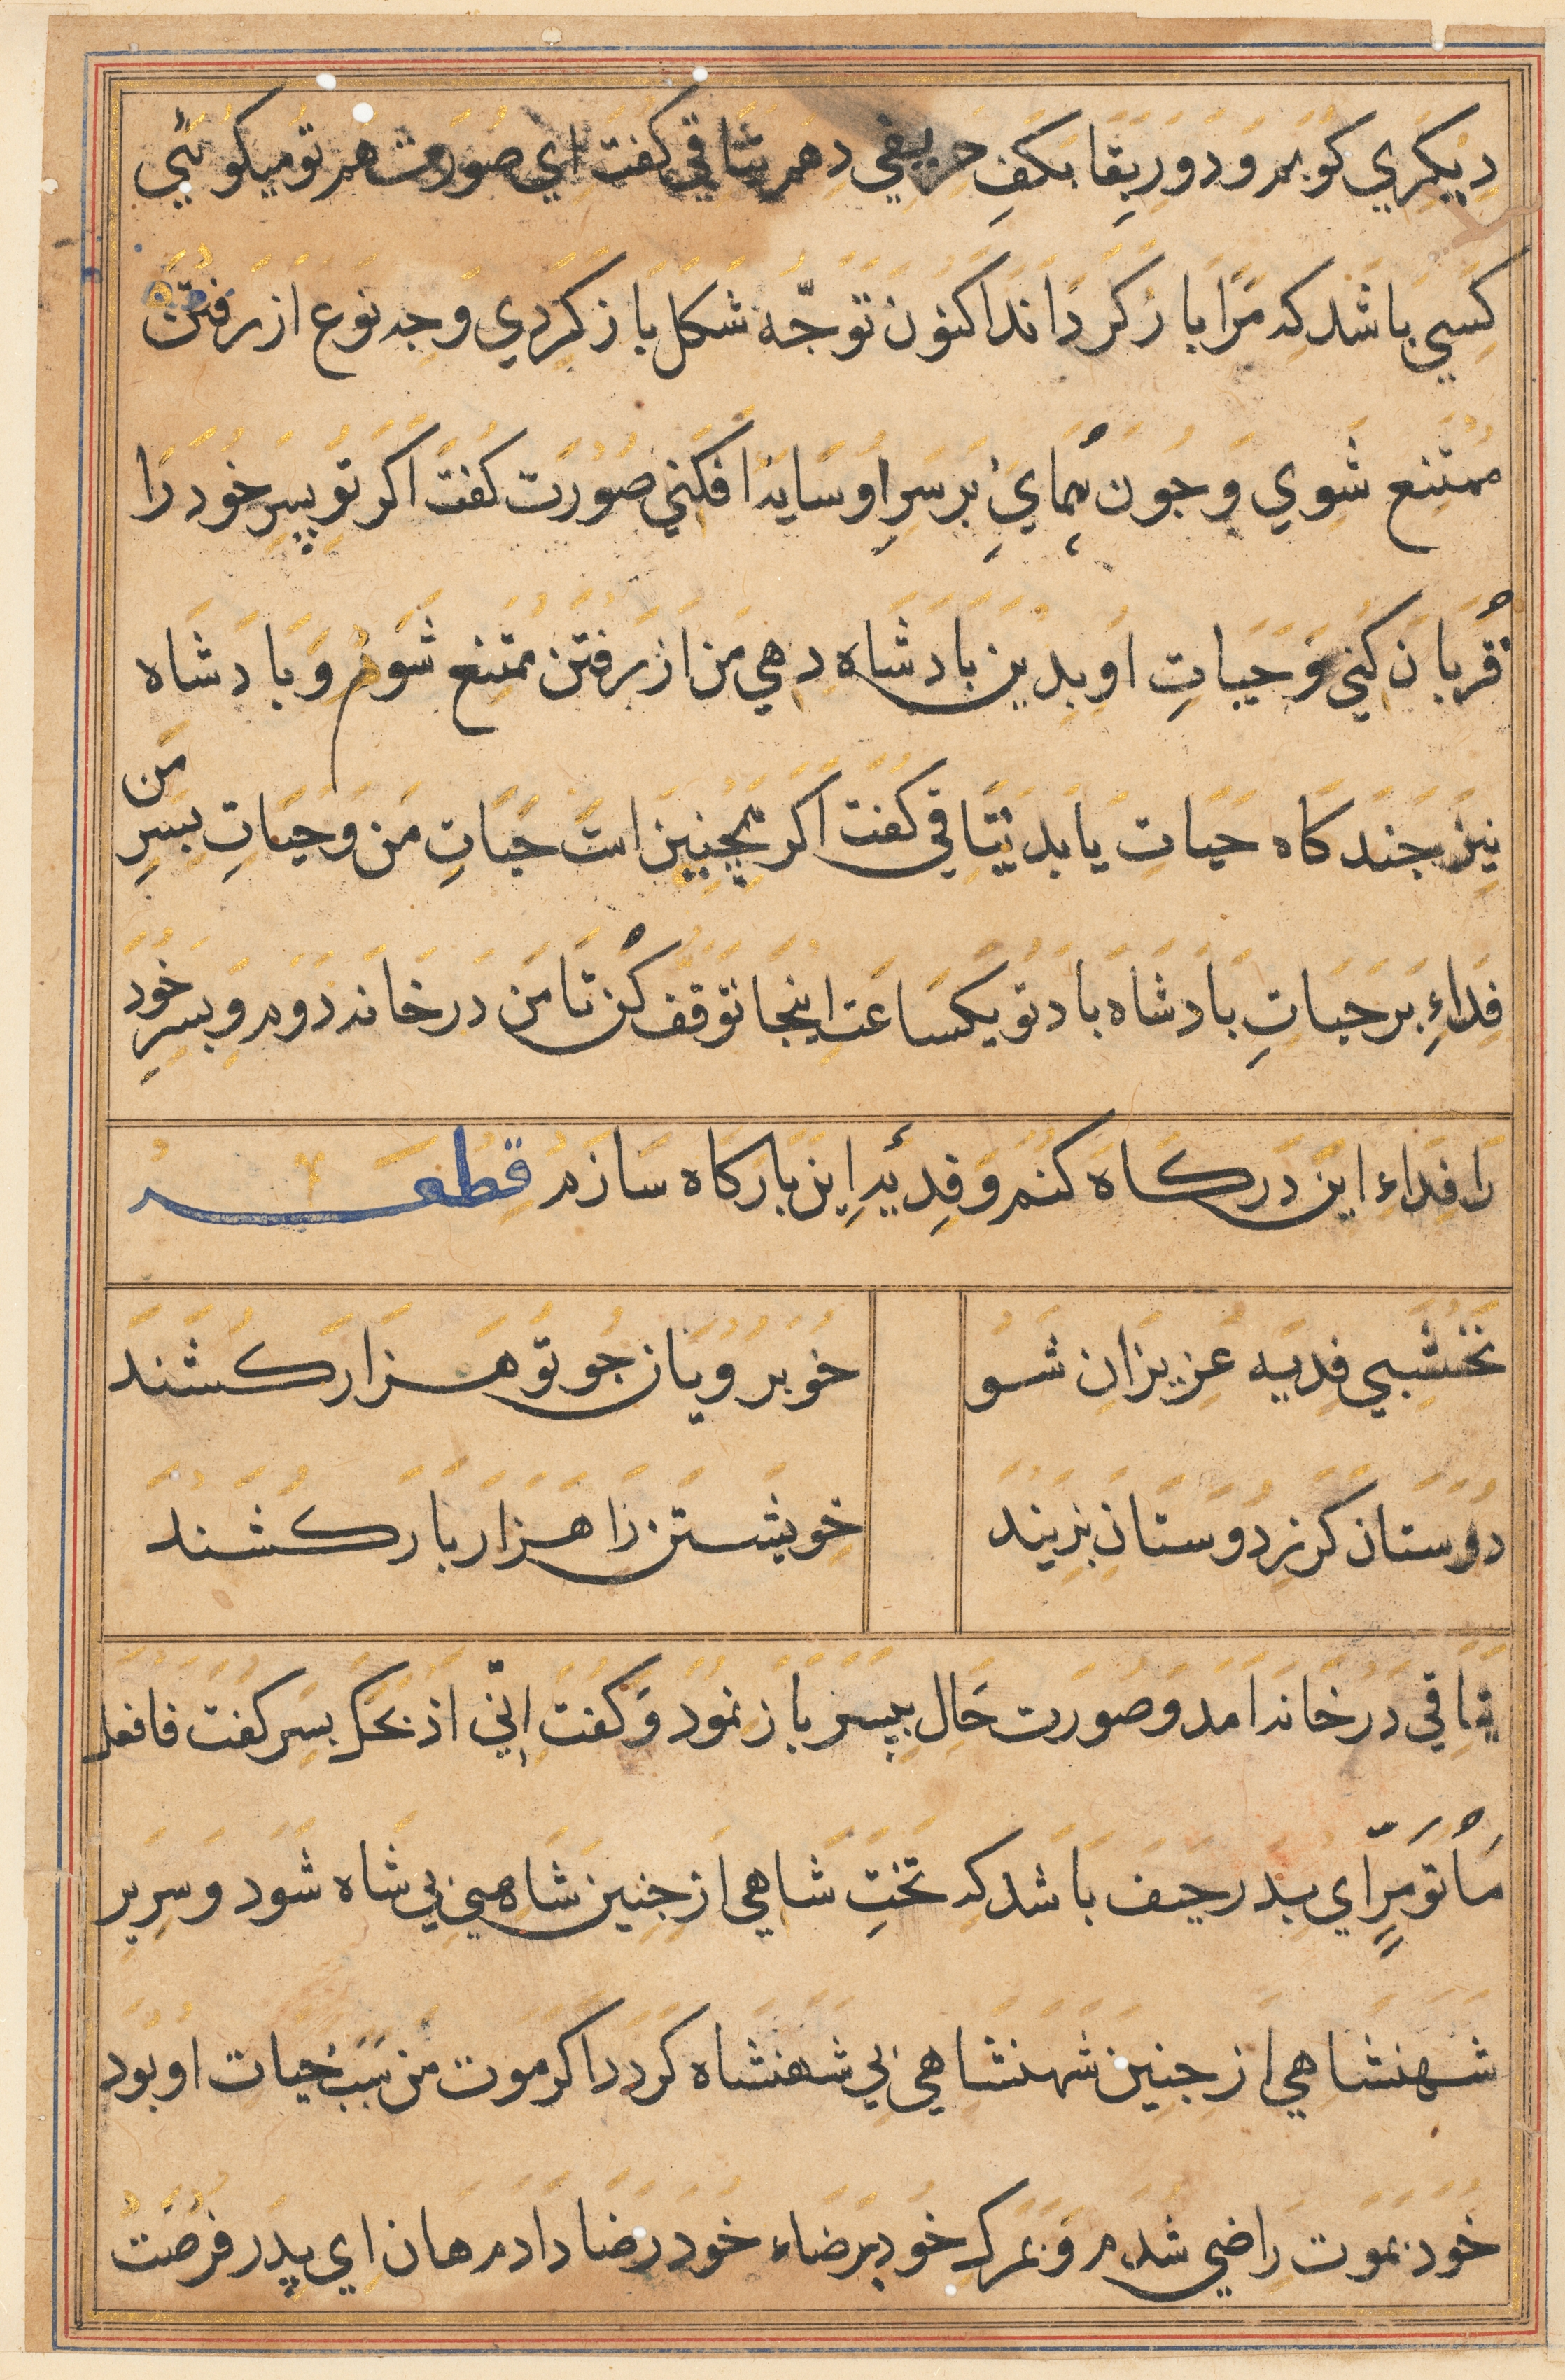 دیکری کو بمرو دو ربقا بکف حریفی دهم یتاقی کفت ای صورت هم تو میکوئی
کسی باشد که مرا باز کرداند اکنون تو جه شکل باز کردی وجه نوع از رفتن
ممتنع شوی و جون همای بر سر او سایه افکنی صورت کفت اکر تو پسر خود را
قربان کنی و حیات او بدین بادشاه دهی من از رفتن ممتنع شوم و بادشاه
نیز جندکاه حیات یابد یتاقی کفت اکر همچنین است حیات من و حیات بسر من
فداء بر حیات بادشاه باد تو یکساعت اینجا توقف کن تا من در خانه دوم و بسر خود
را فداء این درکاه کنم و فدئه این بارکاه سازم قطعه
نخشبی فدیه عزیزان شو
خوبرویان جو تو هزار کشند
دوستان کز دوستان بزیند
خویشتن را هزار بار کشند
یتاقی در خانه امد و صورت حال بپسر باز نمود و کفت انّی اذبحک بسر کفت فافعل
ما تؤمر ای پدر حیف باشد که تخت شاهی از جنین شاهی بی شاه شود و سریر
شهنشاهی از جنین شهنشاهی بی شهنشاه کردد اکر موت من سبب حیات او بود
خود بموت راضی شدم و بمرک خود برضاء خود رضا دادم هان ای پدر فرصت